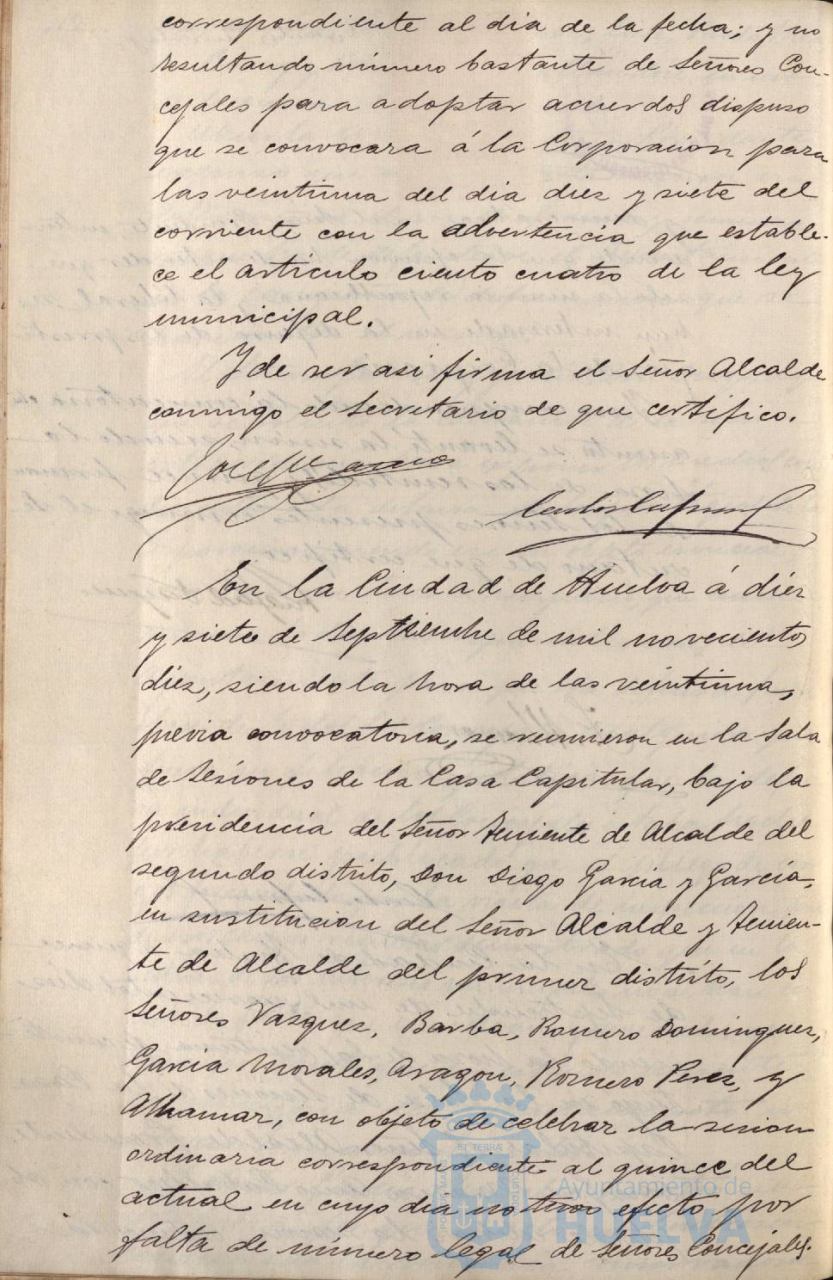 correspondiente al dia de la fecha; y no
resultando número bastante de Señores Con-
cejales para adoptar acuerdos dispuso
que se convocara á la Corporacion para
las veintiuna del dia diez y siete del
corriente con la advertencia que estable-
ce el artículo ciento cuatro de la ley
municipal.
Y de ser asi firma el Señor Alcalde
conmigo el Secretario de que certifico.
En la Ciudad de Huelva á diez
y siete de Septiembre de mil novecientos
diez, siendo la hora de las veintiuna,
previa convocatoria, se reunieron en la Sala
de Sesiones de la Casa Capitular, bajo la
presidencia del Señor Teniente de Alcalde del
segundo distrito, Don Diego Garcia y García,
en sustitucion del Señor Alcalde y Tenien-
te de Alcalde del primer distrito, los
Señores Vazquez, Barba, Romero Dominguez,
Garcia Morales, Aragon, Romero Perez, y
Alhamar, con objeto de celebrar la sesion
ordinaria correspondiente al quince del
actual en cuyo dia no tuvo efecto por
falta de número legal de Señores Concejales.
Ayuntamiento de
HUELVA